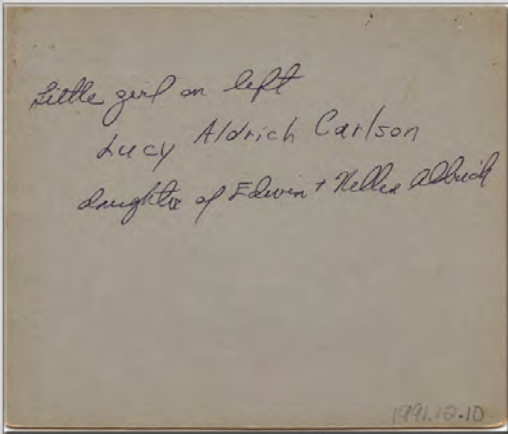 Little girl on left
Lucy Aldrich Carlson
daughter of Edwin + Nellie Aldrich
1991.12.10